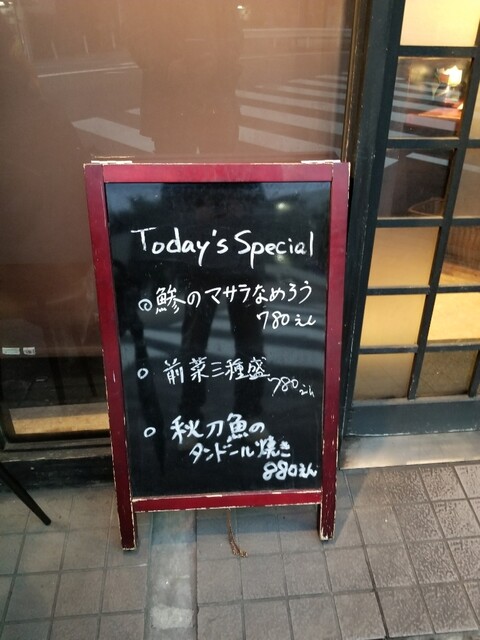 Today's Special
鯵のマサラなめろう
780えん
前菜三種盛
780えん
秋刀魚の
タンドール焼き
880えん